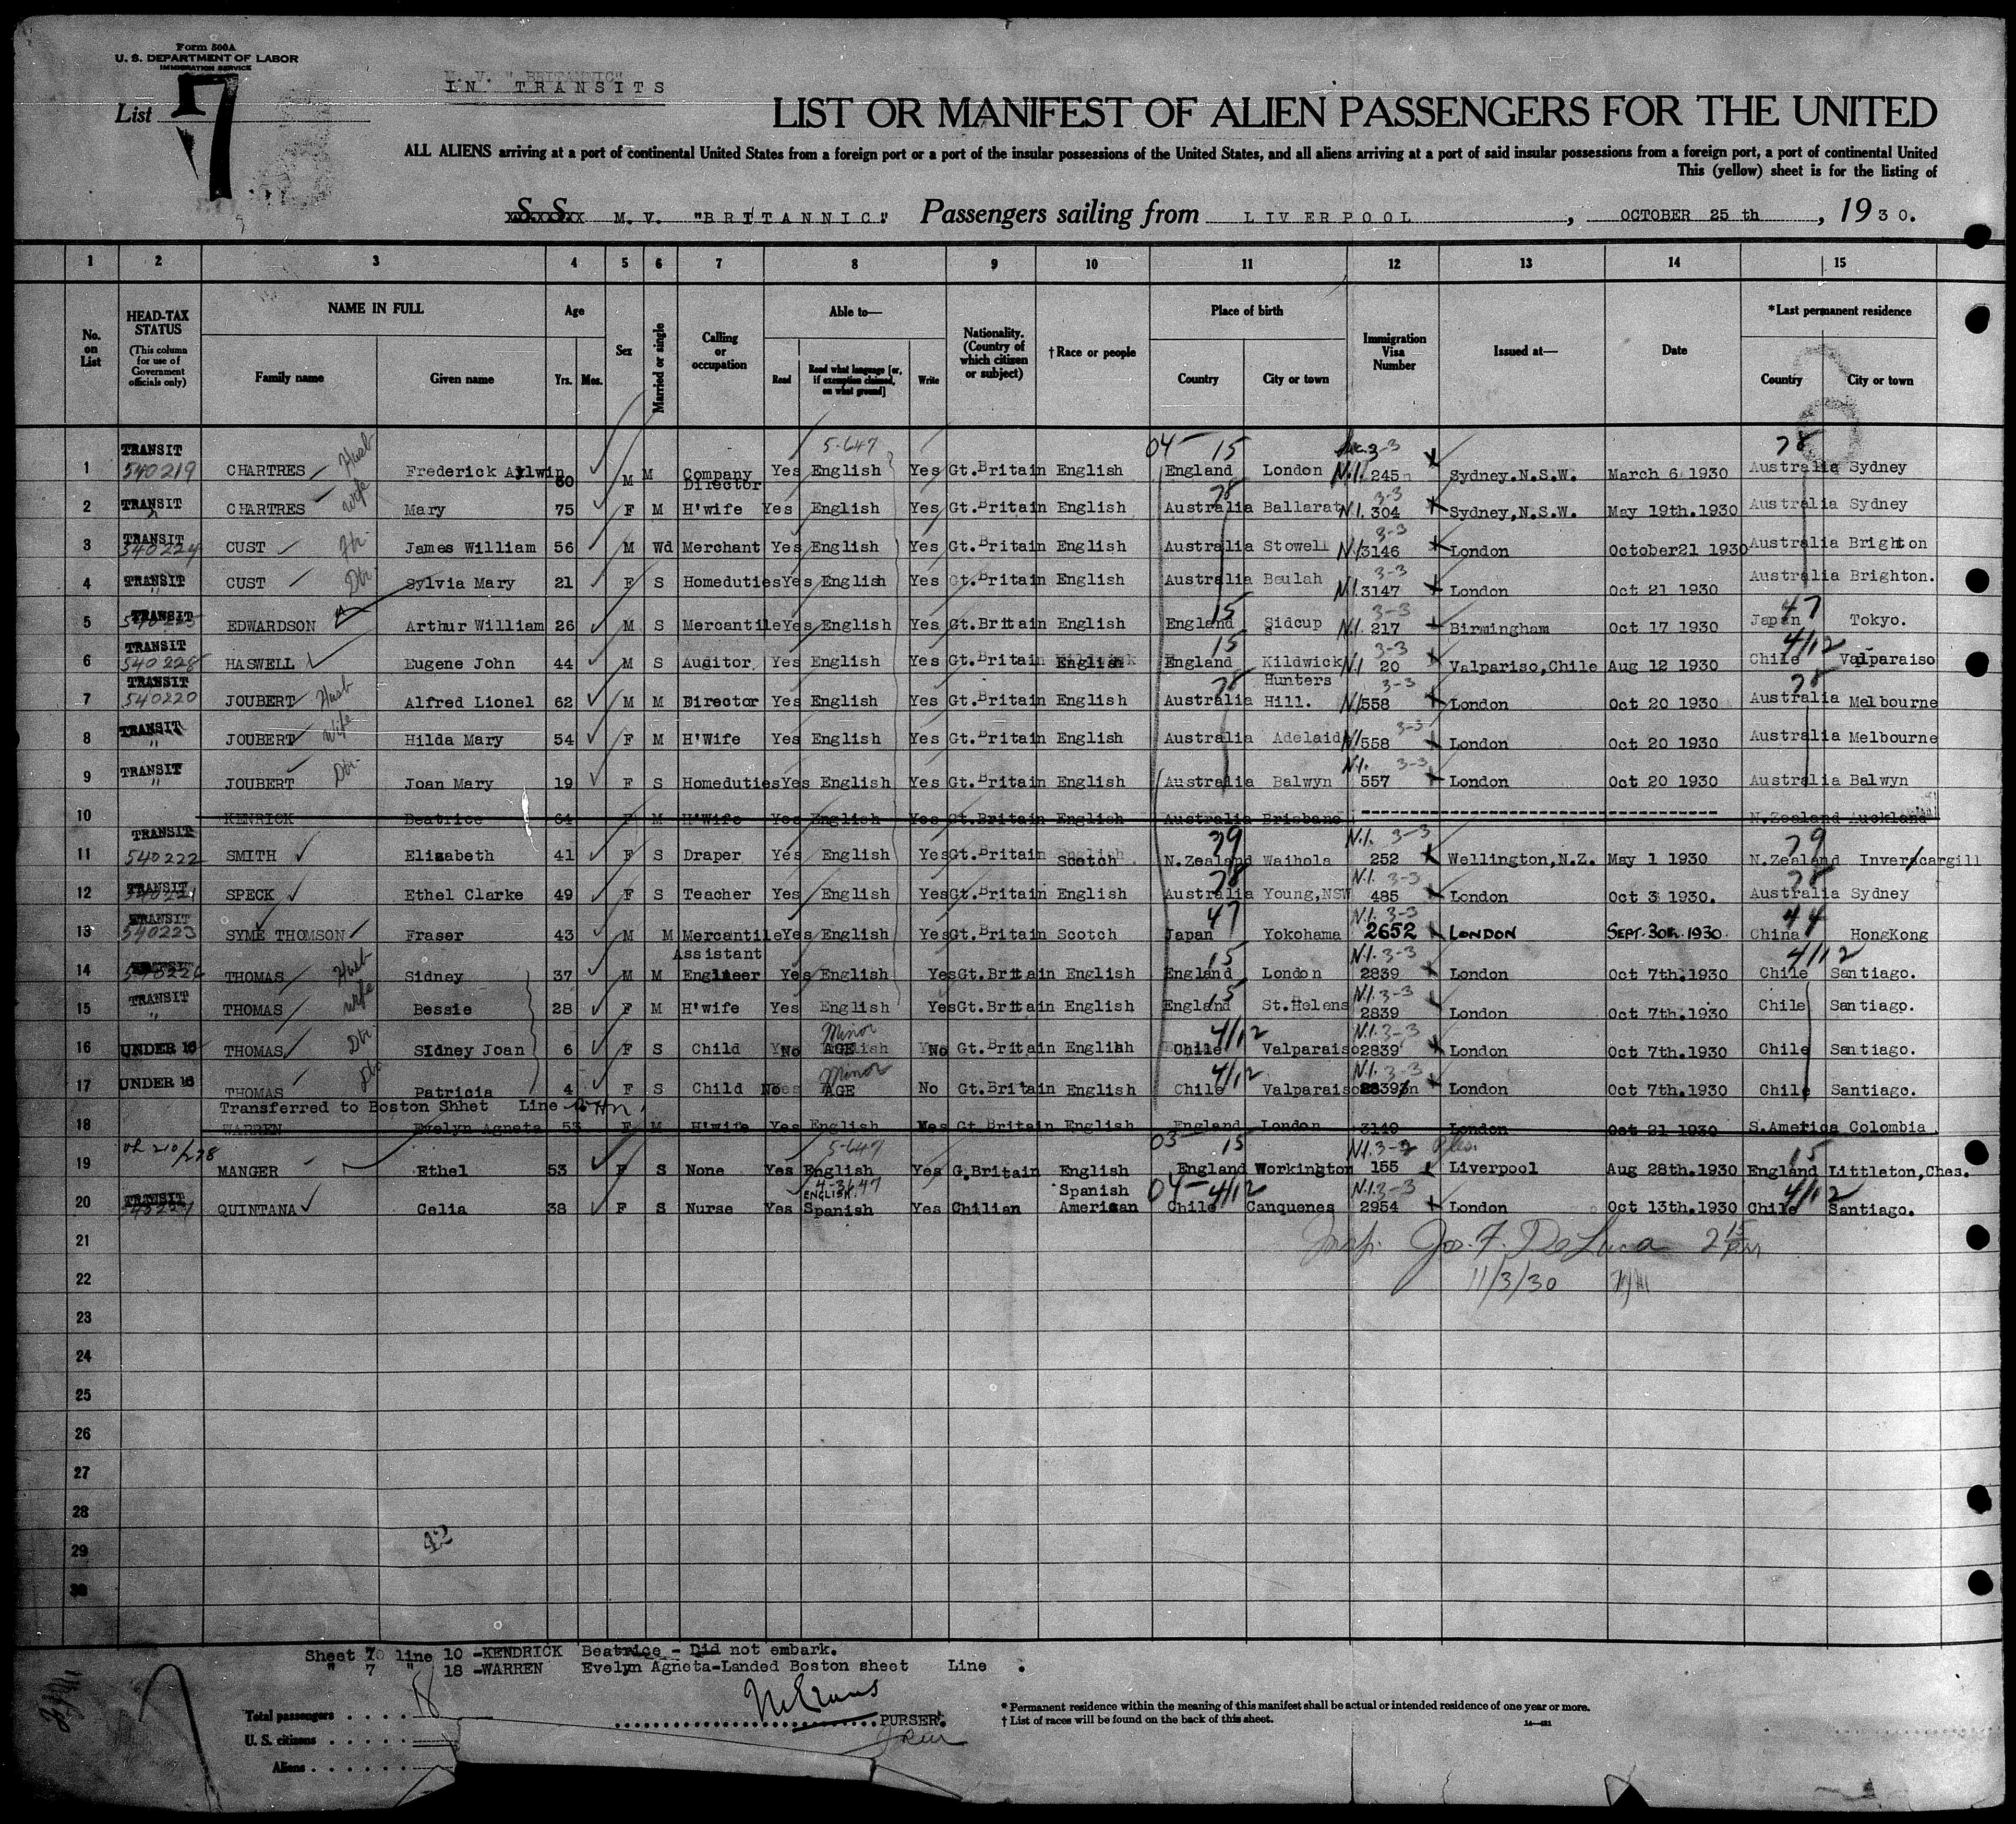 Form 500A
U. S. DEPARTMENT OF LABOR
IMMIGRATION SERVICE
M. V. "BRITANNIC"
IN TRANSITS
List 7
LIST OR MANIFEST OF ALIEN PASSENGERS FOR THE UNITED
ALL ALIENS arriving at a port of continental United States from a foreign port or a port of the insular possessions of the United States, and all aliens arriving at a port of said insular possessions from a foreign port, a port of continental United
This (yellow) sheet is for the listing of
S. S. M. V. "BRITANNIC" Passengers sailing from LIVERPOOL, OCTOBER 25 th, 1930.
1 2 3 4 5 6 7 8 9 10 11 12 13 14 15
No. on List
HEAD-TAX STATUS (This column for use of Government officials only)
NAME IN FULL Family name Given name
Age Yrs. Mos.
Sex
Married or single
Calling or occupation
Able to— Read Read what language [or, if exemption claimed, on what ground] Write
Nationality. (Country of which citizen or subject)
†Race or people
Place of birth Country City or town
Immigration Visa Number
Issued at—
Date
*Last permanent residence Country City or town
5-647 04- 15 3-3 78
1 TRANSIT 540219 CHARTRES Husb Frederick Aylwin 80 M M Company Director Yes English Yes Gt.Britain English England London N.I. 245 Sydney.N.S.W. March 6 1930 Australia Sydney
2 TRANSIT " CHARTRES wife Mary 75 F M H'wife Yes English Yes Gt.Britain English 78 Australia Ballarat N.I. 304 3-3 Sydney,N.S.W. May 19th.1930 Australia Sydney
3 TRANSIT 540224 CUST Fr- James William 56 M Wd Merchant Yes English Yes Gt.Britain English Australia Stowell N.I. 3146 3-3 London October21 1930 Australia Brighton
4 TRANSIT " CUST Dtr- Sylvia Mary 21 F S Homeduties Yes English Yes Gt.Britain English Australia Beulah N.I. 3147 3-3 London Oct 21 1930 Australia Brighton.
5 TRANSIT 540225 EDWARDSON Arthur William 26 M S Mercantile Yes English Yes Gt.Britain English 15 England Sidcup N.I. 217 3-3 Birmingham Oct 17 1930 47 Japan Tokyo.
6 TRANSIT 540228 HASWELL Eugene John 44 M S Auditor Yes English Yes Gt.Britain English 15 England Kildwick N.I 20 3-3 Valpariso,Chile Aug 12 1930 4/12 Chile Valparaiso
7 TRANSIT 540220 JOUBERT Husb Alfred Lionel 62 M M Director Yes English Yes Gt.Britain English 78 Australia Hunters Hill. N.I 558 3-3 London Oct 20 1930 78 Australia Melbourne
8 TRANSIT " JOUBERT wife Hilda Mary 54 F M H'Wife Yes English Yes Gt.Britain English Australia Adelaid N.I 558 3-3 London Oct 20 1930 Australia Melbourne
9 TRANSIT " JOUBERT Dtr- Joan Mary 19 F S Homeduties Yes English Yes Gt.Britain English Australia Balwyn N.I. 557 3-3 London Oct 20 1930 Australia Balwyn
10 KENRICK Beatrice 64 F M H'Wife Yes English Yes Gt.Britain English Australia Brisbane N.Zealand Auckland
11 TRANSIT 540222 SMITH Elizabeth 41 F S Draper Yes English Yes Gt.Britain Scotch 79 N.Zealand Waihola N.I. 252 3-3 Wellington,N.Z. May 1 1930 79 N.Zealand Inverscargill
12 TRANSIT 540221 SPECK Ethel Clarke 49 F S Teacher Yes English Yes Gt.Britain English 78 Australia Young,NSW N.I. 485 3-3 London Oct 3 1930. 78 Australia Sydney
13 TRANSIT 540223 SYME THOMSON Fraser 43 M M Mercantile Yes English Yes Gt.Britain Scotch 47 Japan Yokohama N.I. 2652 3-3 LONDON SEPT. 30th 1930. 44 China HongKong
14 TRANSIT 540226 THOMAS Husb Sidney 37 M M Assistant Engineer Yes English Yes Gt.Britain English 15 England London N.I. 2839 3-3 London Oct 7th.1930 4/12 Chile Santiago.
15 TRANSIT " THOMAS wife Bessie 28 F M H'wife Yes English Yes Gt.Britain English 15 England St.Helens N.I. 2839 3-3 London Oct 7th.1930 Chile Santiago.
16 UNDER 16 THOMAS Dtr- Sidney Joan 6 F S Child No Minor AGE No Gt.Britain English 4/12 Chile Valparaiso N.I. 2839 3-3 London Oct 7th.1930 Chile Santiago.
17 UNDER 16 THOMAS Dtr Patricia 4 F S Child No Minor AGE No Gt.Britain English 4/12 Chile Valparaiso N.I. 2839 3-3 London Oct 7th.1930 Chile Santiago.
Transferred to Boston Shhet Line
18 WARREN Evelyn Agneta 53 F M H'wife Yes English Yes Gt Britain English England London 3149 London Oct 21 1930 S.America Colombia
19 MANGER Ethel 53 F S None Yes 5-647 English Yes G.Britain English 03 15 England Workington N.I. 155 3-2 Liverpool Aug 28th.1930 15 England Littleton,Ches.
20 TRANSIT QUINTANA Celia 38 F S Nurse Yes ENGLISH. Spanish Yes Chilian Spanish American 04- 4/12 Chile Canquenes N.I. 2954 3-3 London Oct 13th.1930 4/12 Chile Santiago.
21 Insp. Jos. F. DeLuca 2 15 PM
22 11/3/30
23
24
25
26
27
28
29 42
30
Sheet 7 line 10 -KENDRICK Beatrice - Did not embark.
" 7 " 18 -WARREN Evelyn Agneta-Landed Boston sheet Line .
Total passengers . . . . . 18
U. S. citizens . . . . .
Aliens . . . . . .
PURSER.
* Permanent residence within the meaning of this manifest shall be actual or intended residence of one year or more.
† List of races will be found on the back of this sheet.